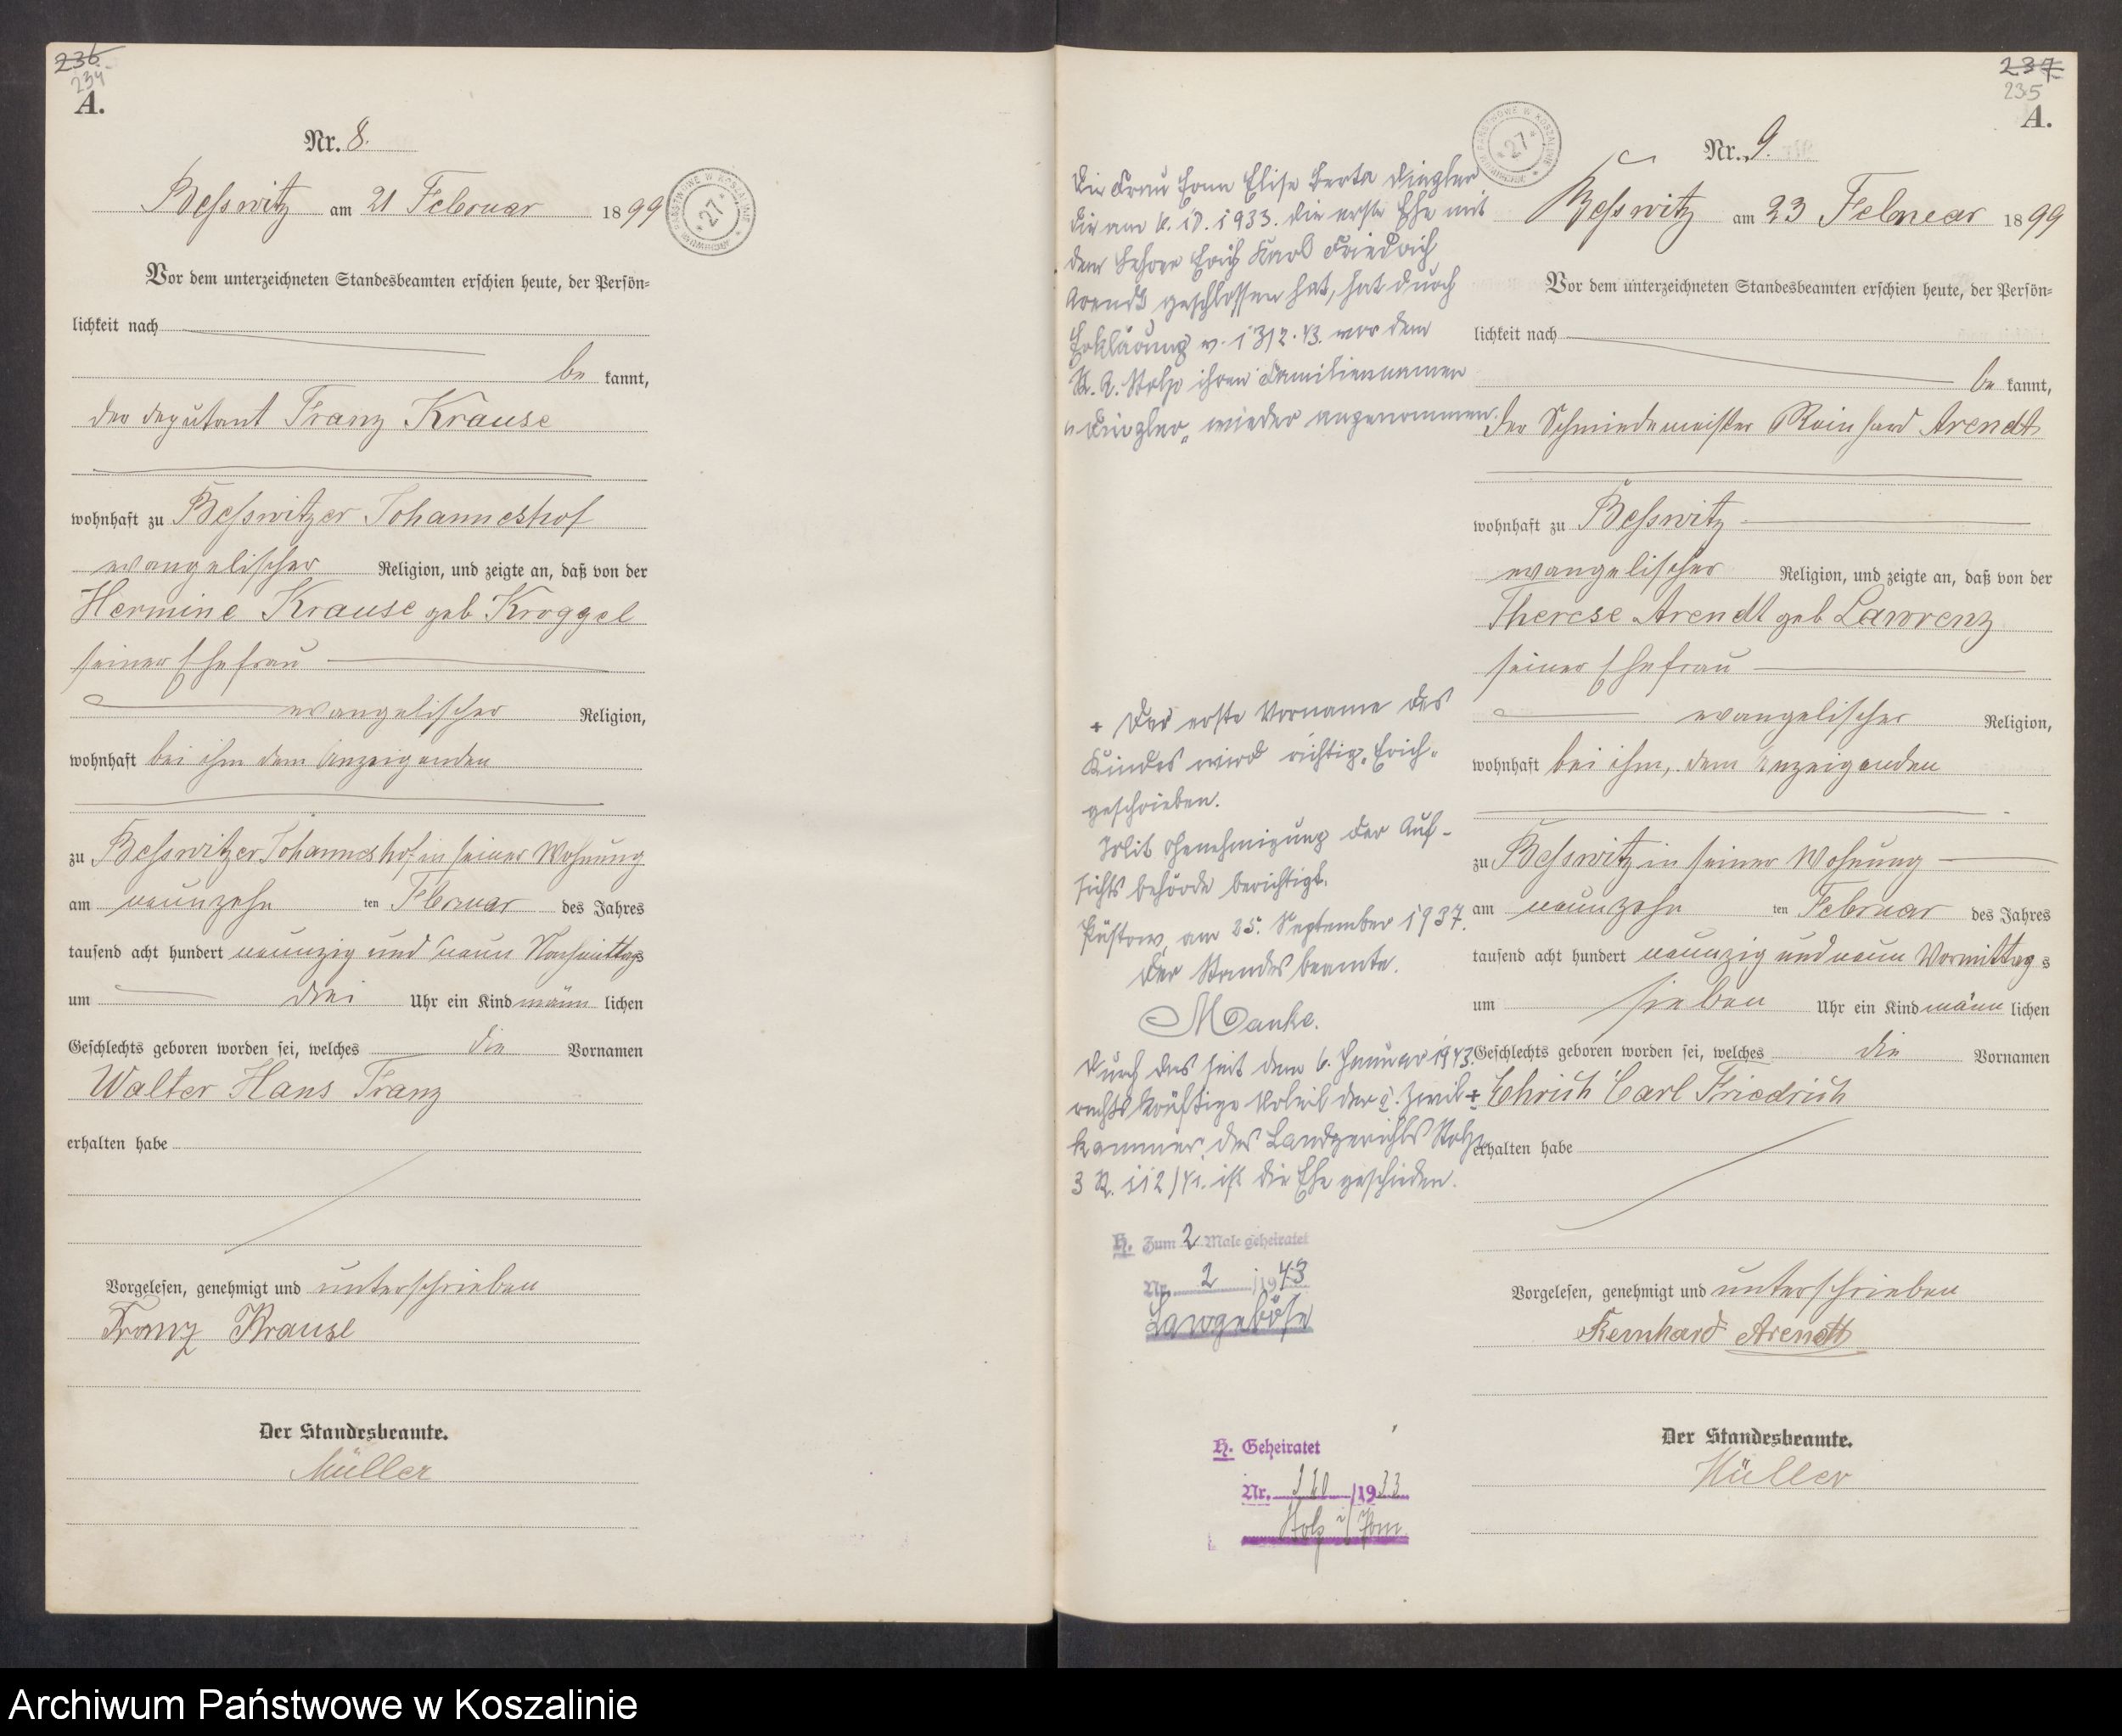 236
234
A.
Nr. 8.
Beßwitz am 21 Februar 1899
ARCHIWUM PAŃSTWOWE W KOSZALINIE
* 27 *
Vor dem unterzeichneten Standesbeamten erschien heute, der Persön-
lichkeit nach
be kannt,
der Deputant Franz Krause
wohnhaft zu Beßwitzer Johanneshof
evangelischer Religion, und zeigte an, daß von der
Hermine Krause geb Kroggel
seiner Ehefrau
evangelischer Religion,
wohnhaft bei ihm dem Anzeigenden
zu Beßwitzer Johanneshof in seiner Wohnung
am neunzehn ten Februar des Jahres
tausend acht hundert neunzig und neun Nachmittags
um drei Uhr ein Kind männ lichen
Geschlechts geboren worden sei, welches die Vornamen
Walter Hans Franz
erhalten habe
Vorgelesen, genehmigt und unterschrieben
Franz Krause
Der Standesbeamte.
Müller
237
235
A.
Nr. 9.
Beßwitz am 23 Februar 1899
ARCHIWUM PAŃSTWOWE W KOSZALINIE
* 27 *
Vor dem unterzeichneten Standesbeamten erschien heute, der Persön-
lichkeit nach
be kannt,
der Schmiedemeister Reinhard Arendt
wohnhaft zu Beßwitz
evangelischer Religion, und zeigte an, daß von der
Therese Arendt geb Lawrenz
seiner Ehefrau
evangelischer Religion,
wohnhaft bei ihm, dem Anzeigenden
zu Beßwitz in seiner Wohnung
am neunzehn ten Februar des Jahres
tausend acht hundert neunzig und neun Vormittag s
um sieben Uhr ein Kind männ lichen
Geschlechts geboren worden sei, welches die Vornamen
+ Ehrich Carl Friedrich
erhalten habe
Vorgelesen, genehmigt und unterschrieben
Reinhard Arendt
Der Standesbeamte.
Müller
Die Frau Erna Elise Berta
die am 6.10.1933. die erste Ehe mit
dem Lehrer Erich Karl Friedrich
Arendt geschlossen hat, hat durch
Erklärung v. 43. vor dem
St. A. Stolp ihren Familiennamen
wieder angenommen.
+ Der erste Vorname des
Kindes wird richtig „Erich"
geschrieben.
Mit Genehmigung der Auf-
sichtsbehörde berichtigt.
Püstow, am 25. September 1937.
Der Standesbeamte.
Manke.
Durch das seit dem 6. Januar 1943.
rechtskräftige Urteil der 2. Zivil-
kammer des Landgerichts Stolp
3 R. 112/41. ist die Ehe geschieden.
H. Zum 2 Male geheiratet
Nr. 2 /1943
Langeböse
H. Geheiratet
Nr. /1933
Stolp i/Pom
Archiwum Państwowe w Koszalinie